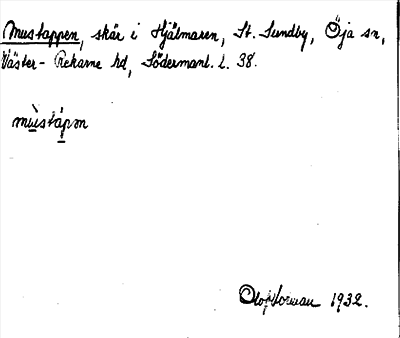 Mustappen, skär i Hjälmaren, St. Sundby, Öja sn,
Väster-Rekarne hd, Södermanl. l. 38.
mùstápm
Olof Norman 1932.